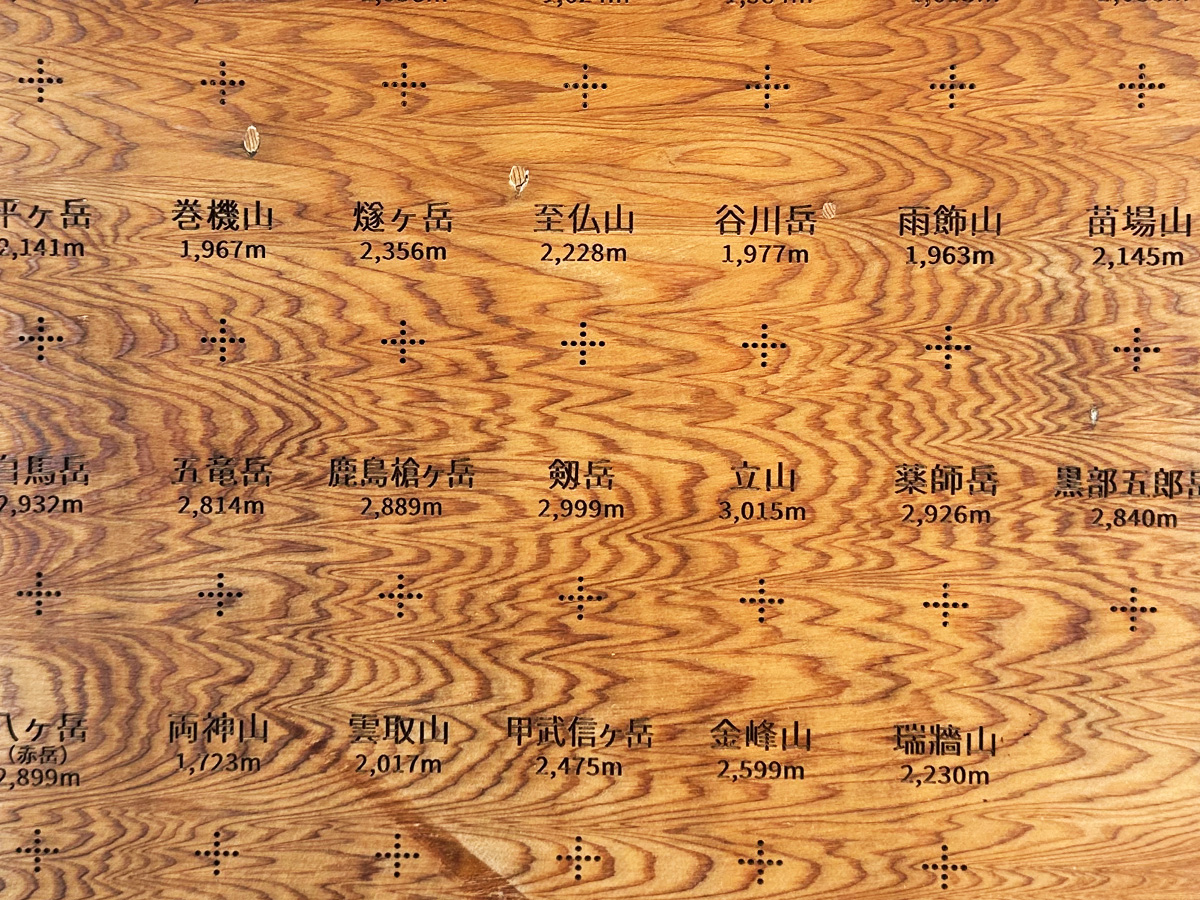 平ヶ岳 巻機山 燧ヶ岳 至仏山 谷川岳 雨飾山 苗場山
2,141m 1,967m 2,356m 2,228m 1,977m 1,963m 2,145m
白馬岳 五竜岳 鹿島槍ヶ岳 剱岳 立山 薬師岳 黒部五郎岳
2,932m 2,814m 2,889m 2,999m 3,015m 2,926m 2,840m
八ヶ岳 両神山 雲取山 甲武信ヶ岳 金峰山 瑞牆山
(赤岳)
2,899m 1,723m 2,017m 2,475m 2,599m 2,230m